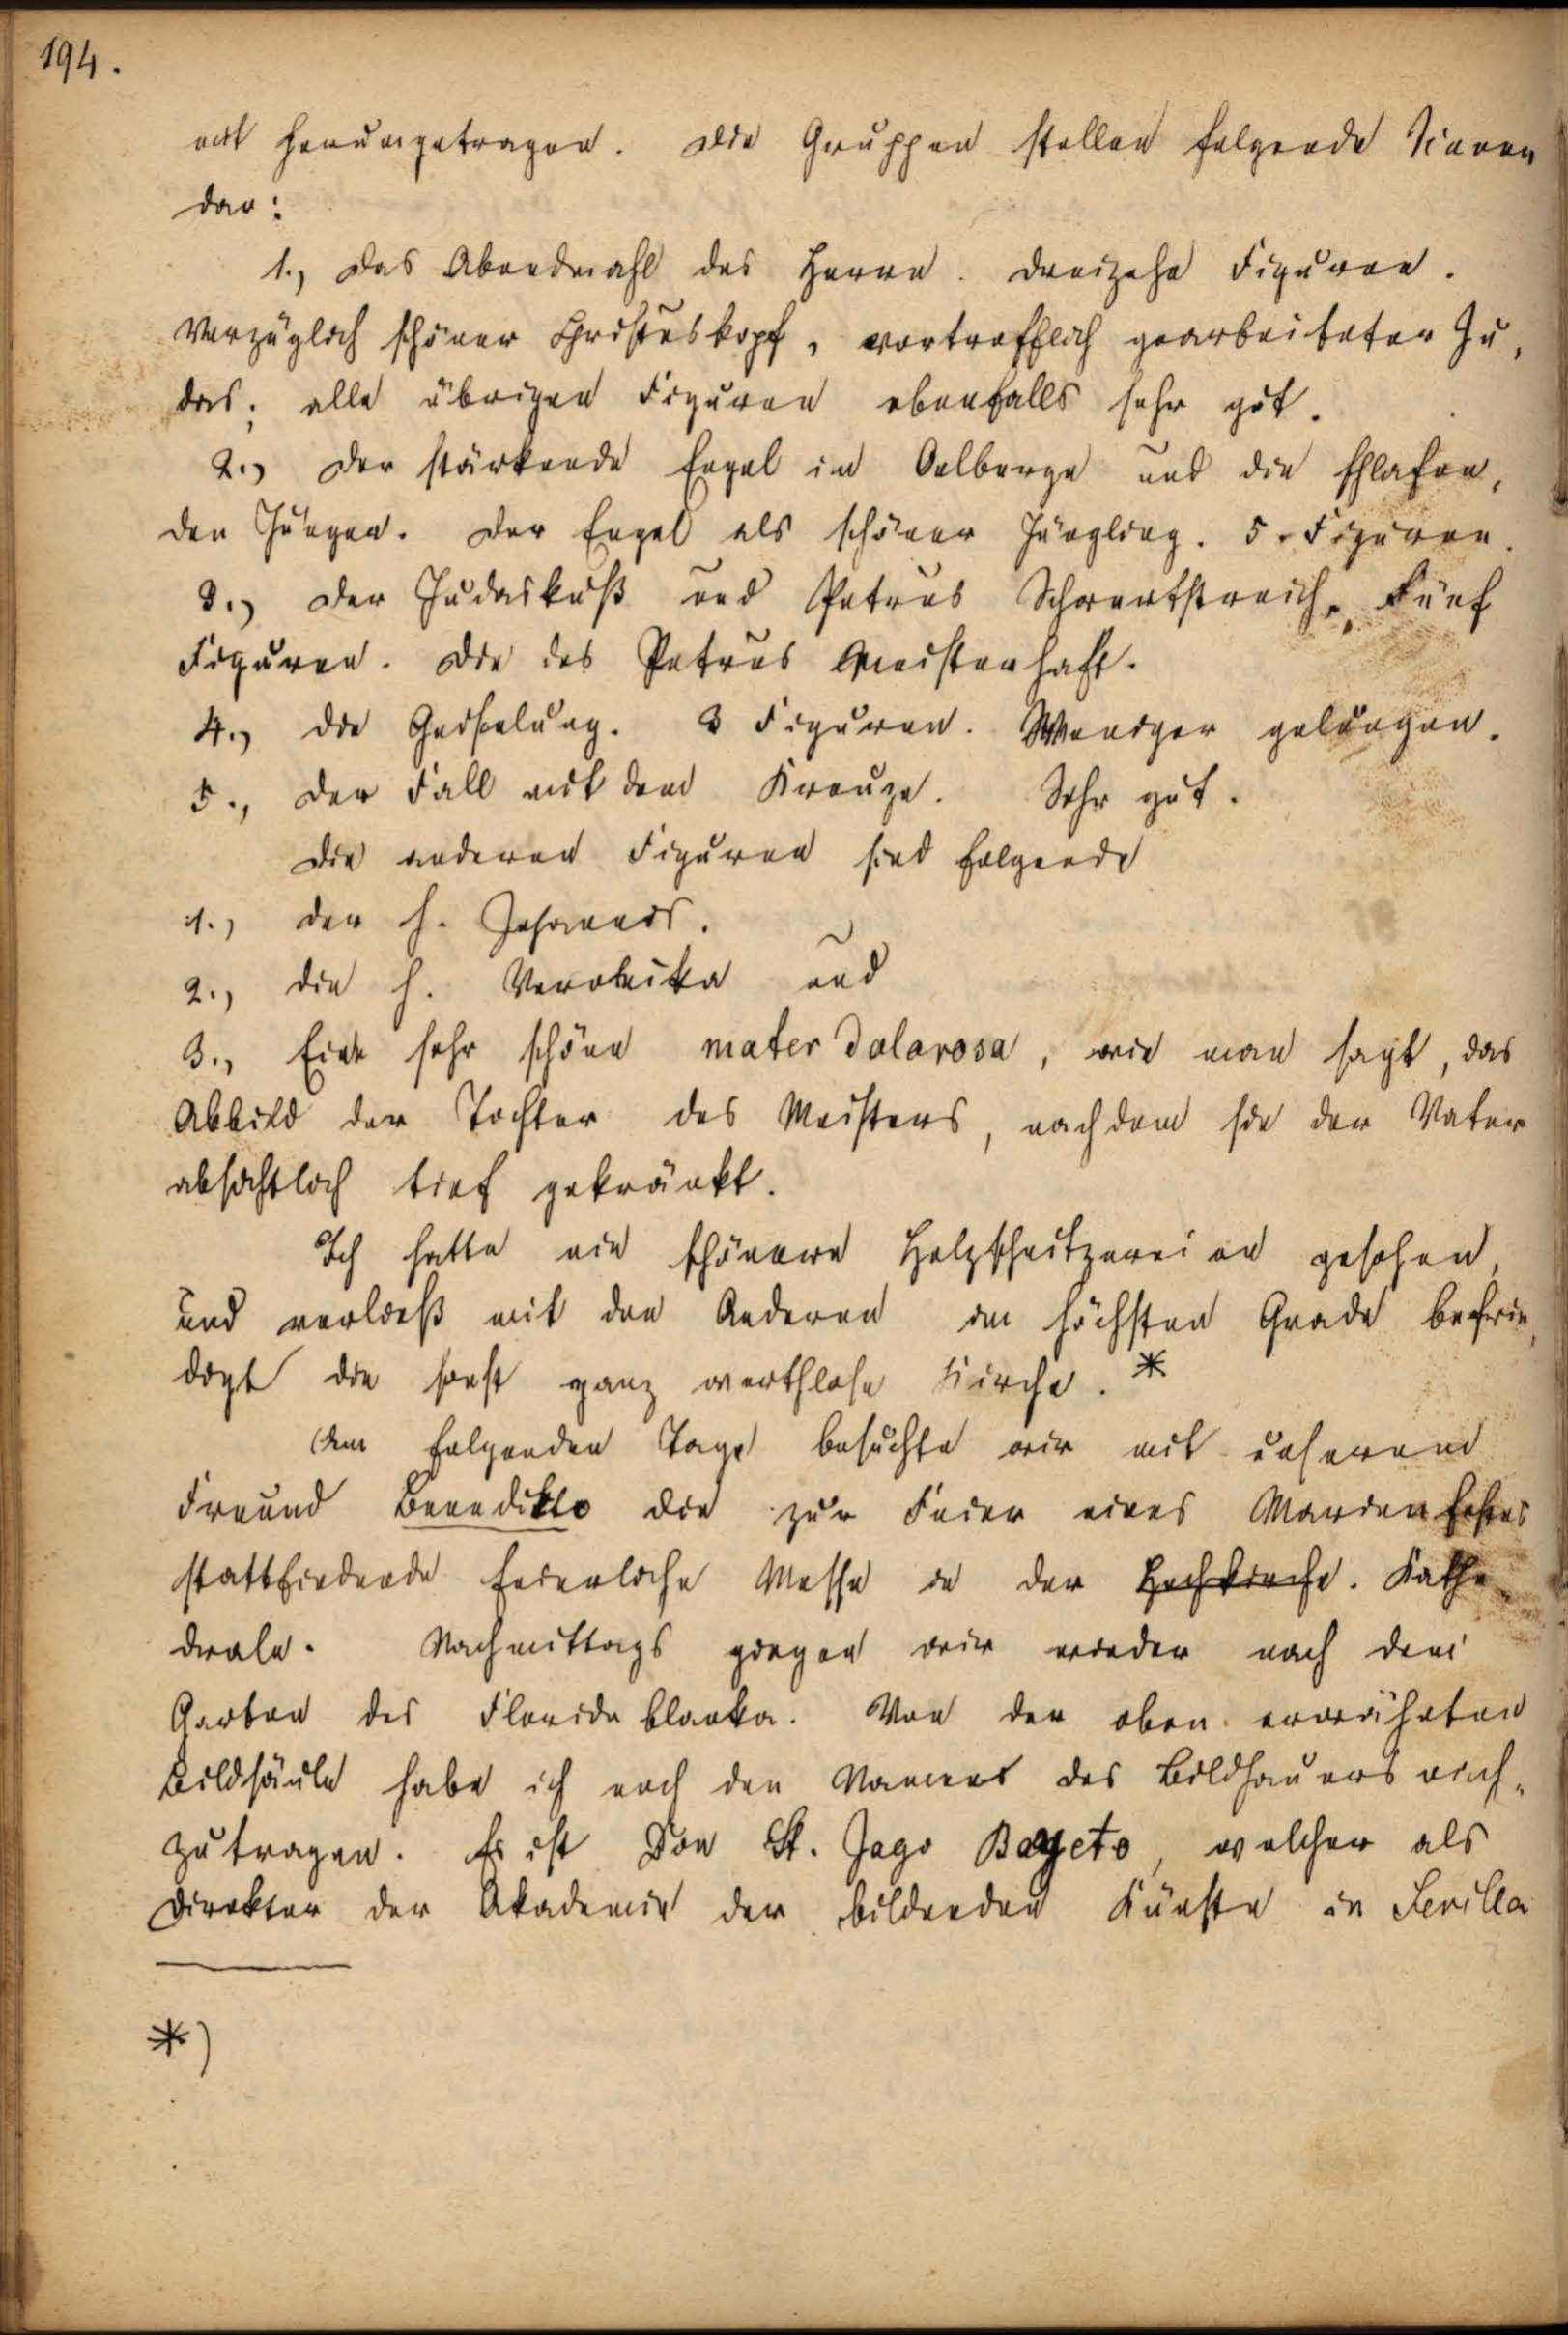 194.
mit herumgetragen. Die Gruppen stellen folgende Scenen
dar:
1., Das Abendmahl des Herrn. Dreizehn Figuren.
Vorzüglich schöner Christuskopf, vortrefflich gearbeiteter Ju,
das; alle übrigen Figuren ebenfalls sehr gut.
2., Der stärkende Engel im Oelberge und die schlafen,
den Jünger. Der Engel als schöner Jüngling. 5. Figuren.
3., Der Judaskuß und Petrus Schwertstreich. Fünf
Figuren. Die des Petrus Meisterhaft.
4., Die Geißelung. 3 Figuren. Weniger gelungen.
5., Der Fall mit dem Kreuze. Sehr gut.
Die anderen Figuren sind folgende
1., der h. Johannes.
2., die h. Veronika und
3., Eine sehr schöne mater dolorosa, wie man sagt, das
Abbild der Tochter des Meisters, nachdem sie der Vater
absichtlich tief gekränkt.
Ich hatte nie schönere Holzschnitzereien gesehen,
und verließ mit den Anderen im höchsten Grade befrie,
digt die sonst ganz werthlose Kirche. *
Am folgenden Tage besuchte wir mit unserem
Freund Benedikto die zur Feier eines Marienfestes
stattfindende feierliche Messe in der Hochkirche. Kathe
drale. Nachmittags giengen wir wieder nach dem
Garten des Florida blanka. Von der oben erwähnten
Bildsäule habe ich noch den Namen des Bildhauers nach,
zutragen. Es ist Don St. Jago Bageto, welcher als
Direktor der Akademie der bildenden Künste in Sevilla
*)